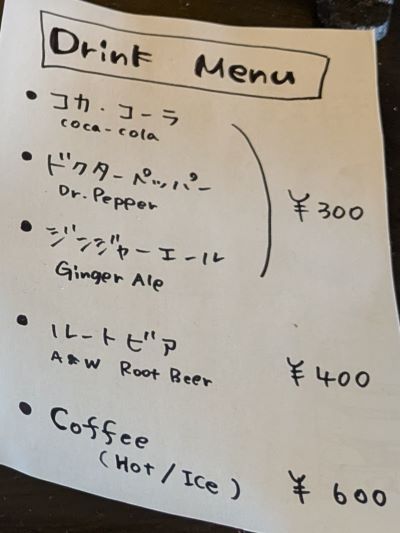 Drink Menu
• コカ・コーラ
coca-cola
• ドクターペッパー
Dr. Pepper
¥300
• ジンジャーエール
Ginger Ale
• ルートビア
A&W Root Beer
¥400
• Coffee
(Hot/Ice)
¥600